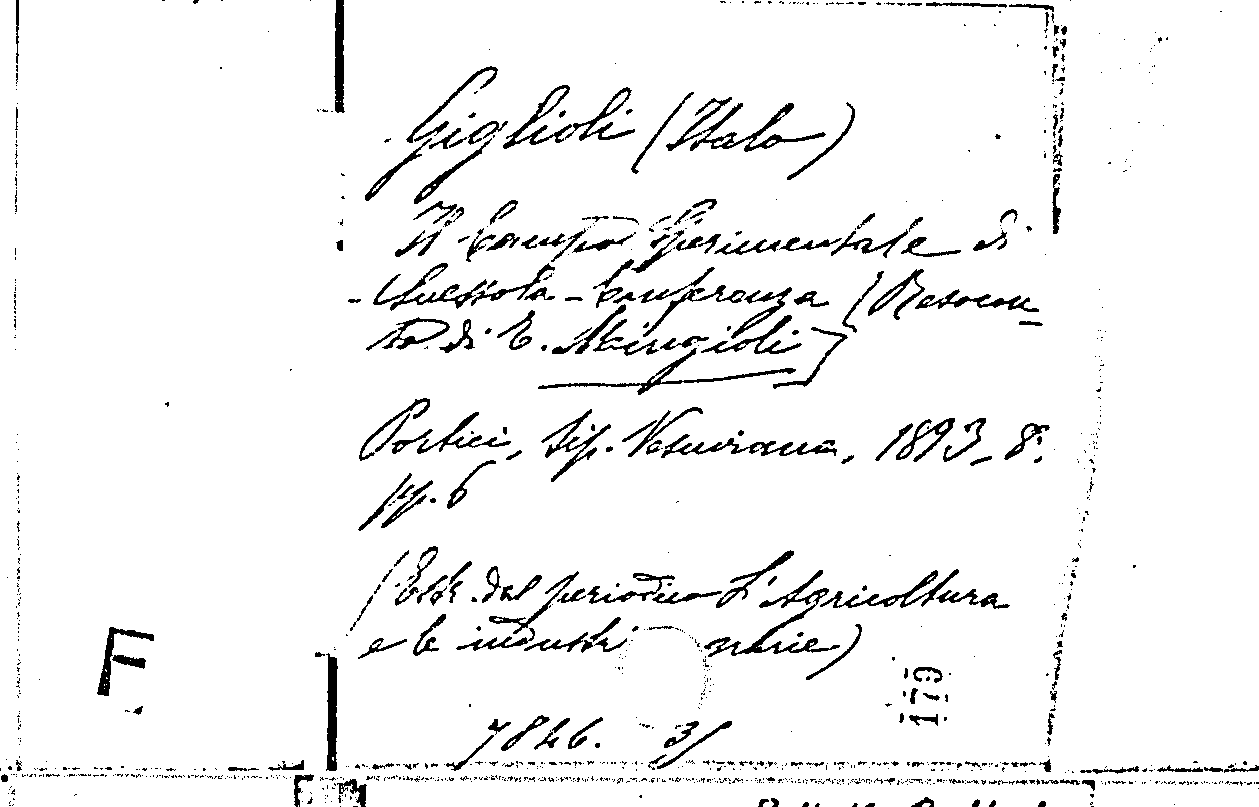 Giglioli (Italo)
Il Campo Sperimentale di
Suessola - Conferenza [Resocon-
to di E. Mingioli]
Portici, tip. Vesuviana, 1893, 8°.
pp. 6
(Estr. dal periodico L'Agricoltura
e le industri narie)
7846. 3
F
179